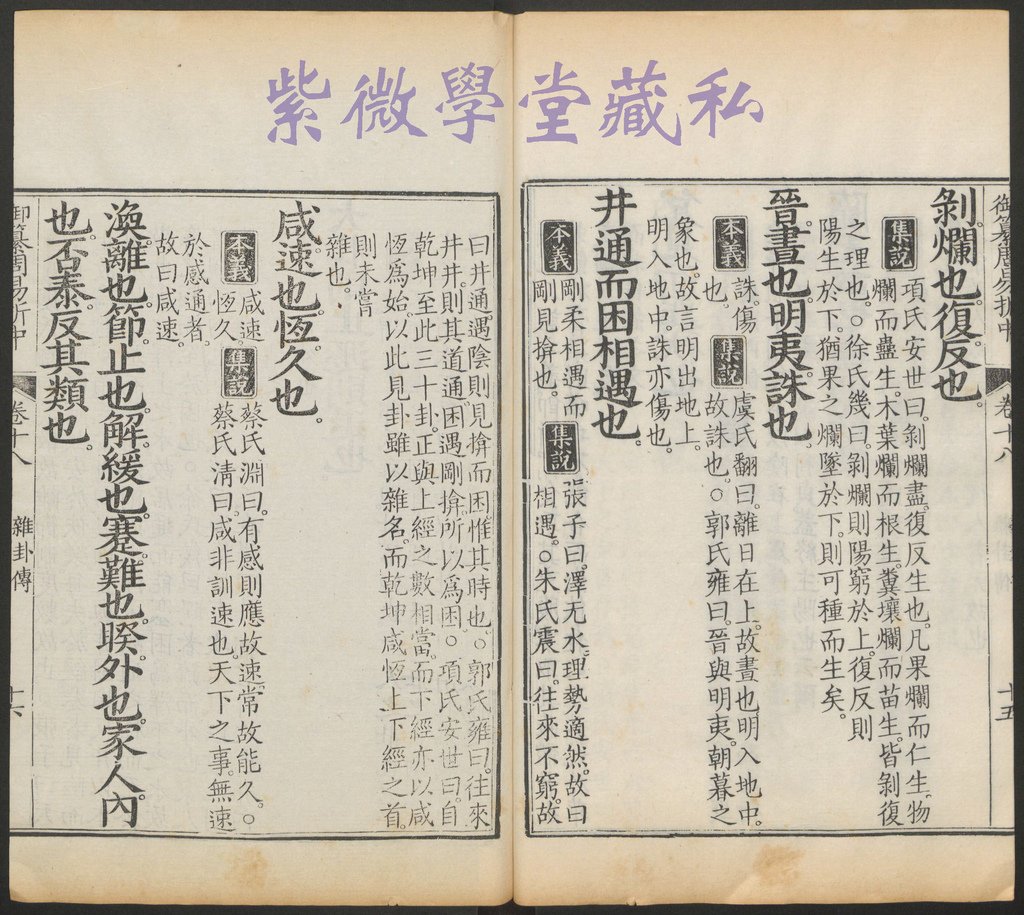 紫微學堂藏私
御纂周易折中 卷十八 十五
剝爛也。復反也。
集說 項氏安世曰。剝爛盡。復反生也。凡果爛而仁生。物
爛而蠱生。木葉爛而根生。糞壤爛而苗生。皆剝復
之理也。○徐氏幾曰。剝爛則陽窮於上。復反則
陽生於下。猶果之爛墜於下。則可種而生矣。
晉晝也。明夷誅也。
本義 誅傷
也。
集說 虞氏翻曰。離日在上。故晝也。明入地中。
故誅也。○郭氏雍曰。晉與明夷。朝暮之
象也。故言明出地上。
明入地中。誅亦傷也。
井通而困相遇也。
本義 剛柔相遇而
剛見揜也。
集說 張子曰。澤无水。理勢適然。故曰
相遇。○朱氏震曰。往來不窮。故
曰井通。遇陰則見揜而困。惟其時也。○郭氏雍曰。往來
井井。則其道通。困遇剛揜。所以爲困。○項氏安世曰。自
乾坤至此三十卦。正與上經之數相當。而下經亦以咸
恆爲始。以此見卦雖以雜名。而乾坤咸恆上下經之首。
則未嘗
雜也。
咸速也。恆久也。
本義 咸速。
恆久。
集說 蔡氏淵曰。有感則應。故速。常故能久。○
蔡氏淸曰。咸非訓速也。天下之事。無速
於感通者。
故曰咸速。
渙離也。節。止也。解。緩也。蹇。難也。睽。外也。家人內
也。否泰。反其類也。
御纂周易折中 卷十八 雜卦傳 十六